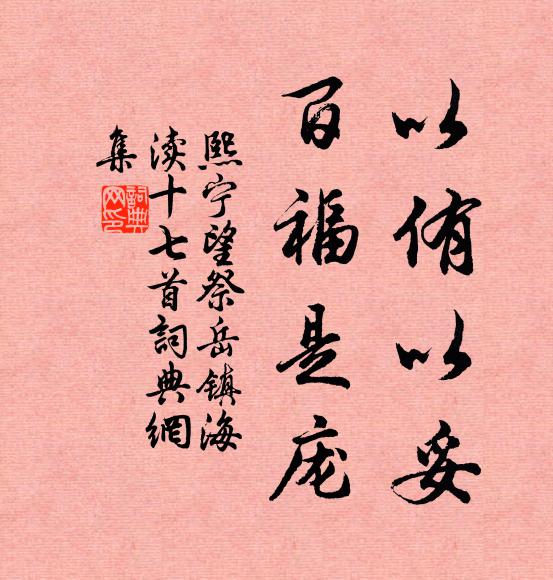 以侑以妥
百福是庞
熙宁望祭岳镇海
渎十七首詞典網
集
詞典
网印